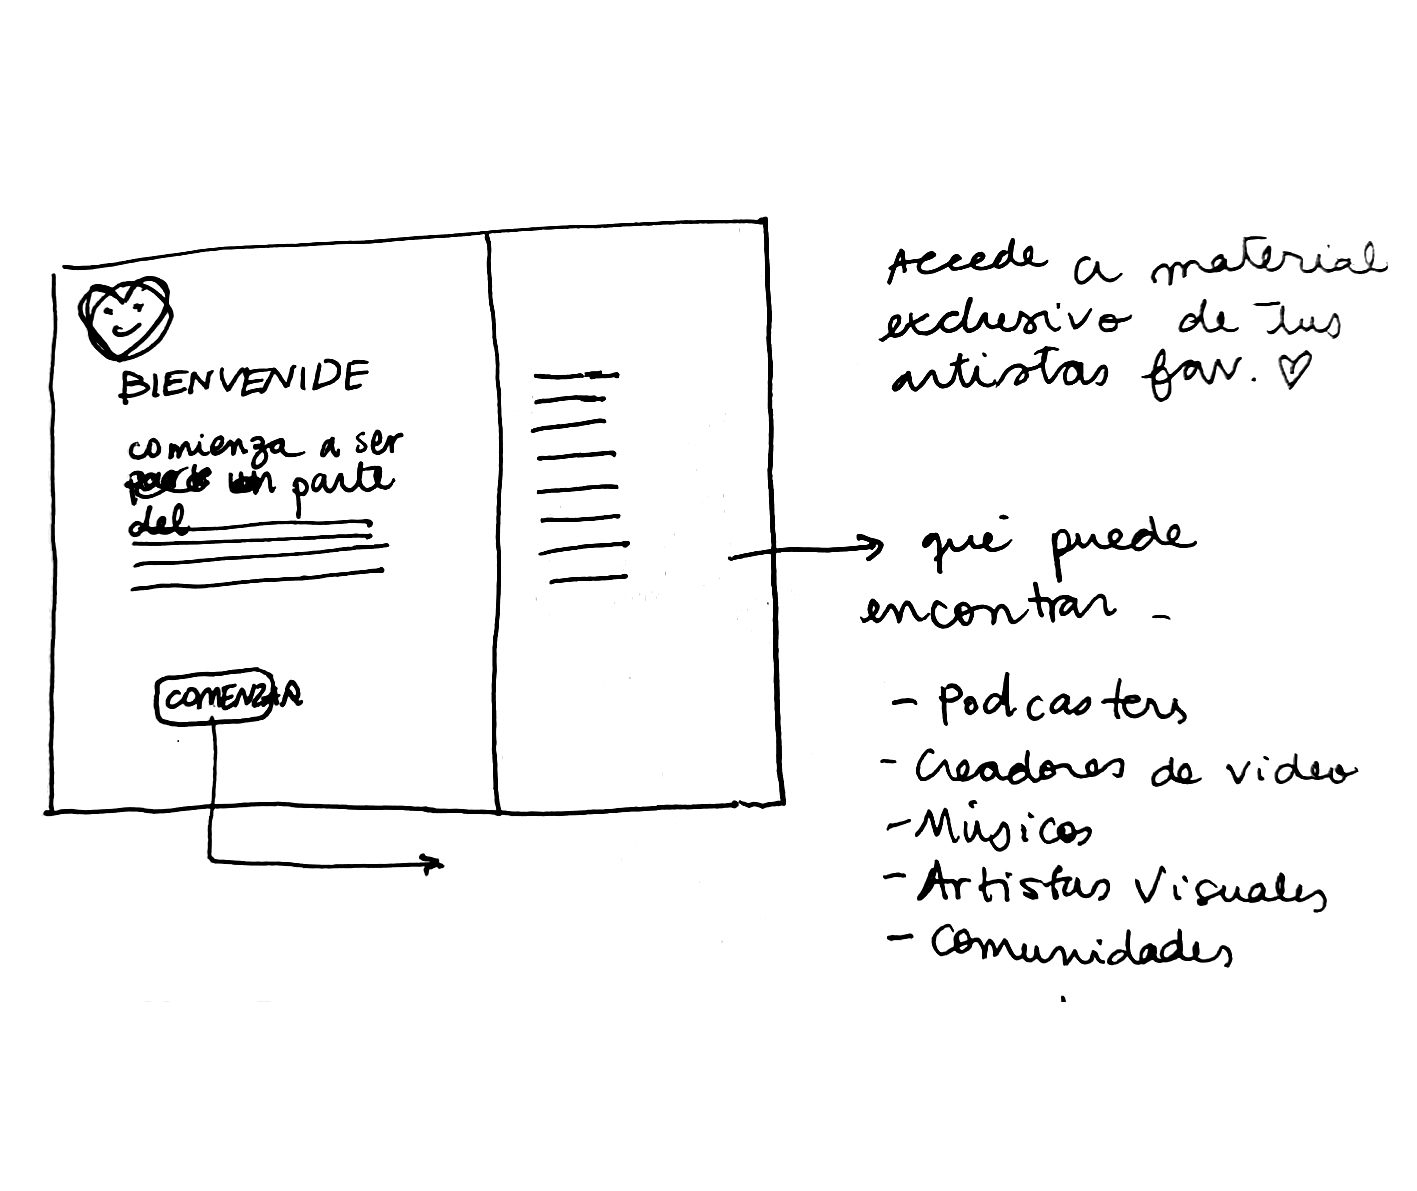 BIENVENIDE
comienza a ser
un parte
del
COMENZAR
Accede a material
exclusivo de tus
artistas fav. ♡
qué puede
encontrar -
- Podcasters
- Creadores de video
- Músicos
- Artistas Visuales
- Comunidades